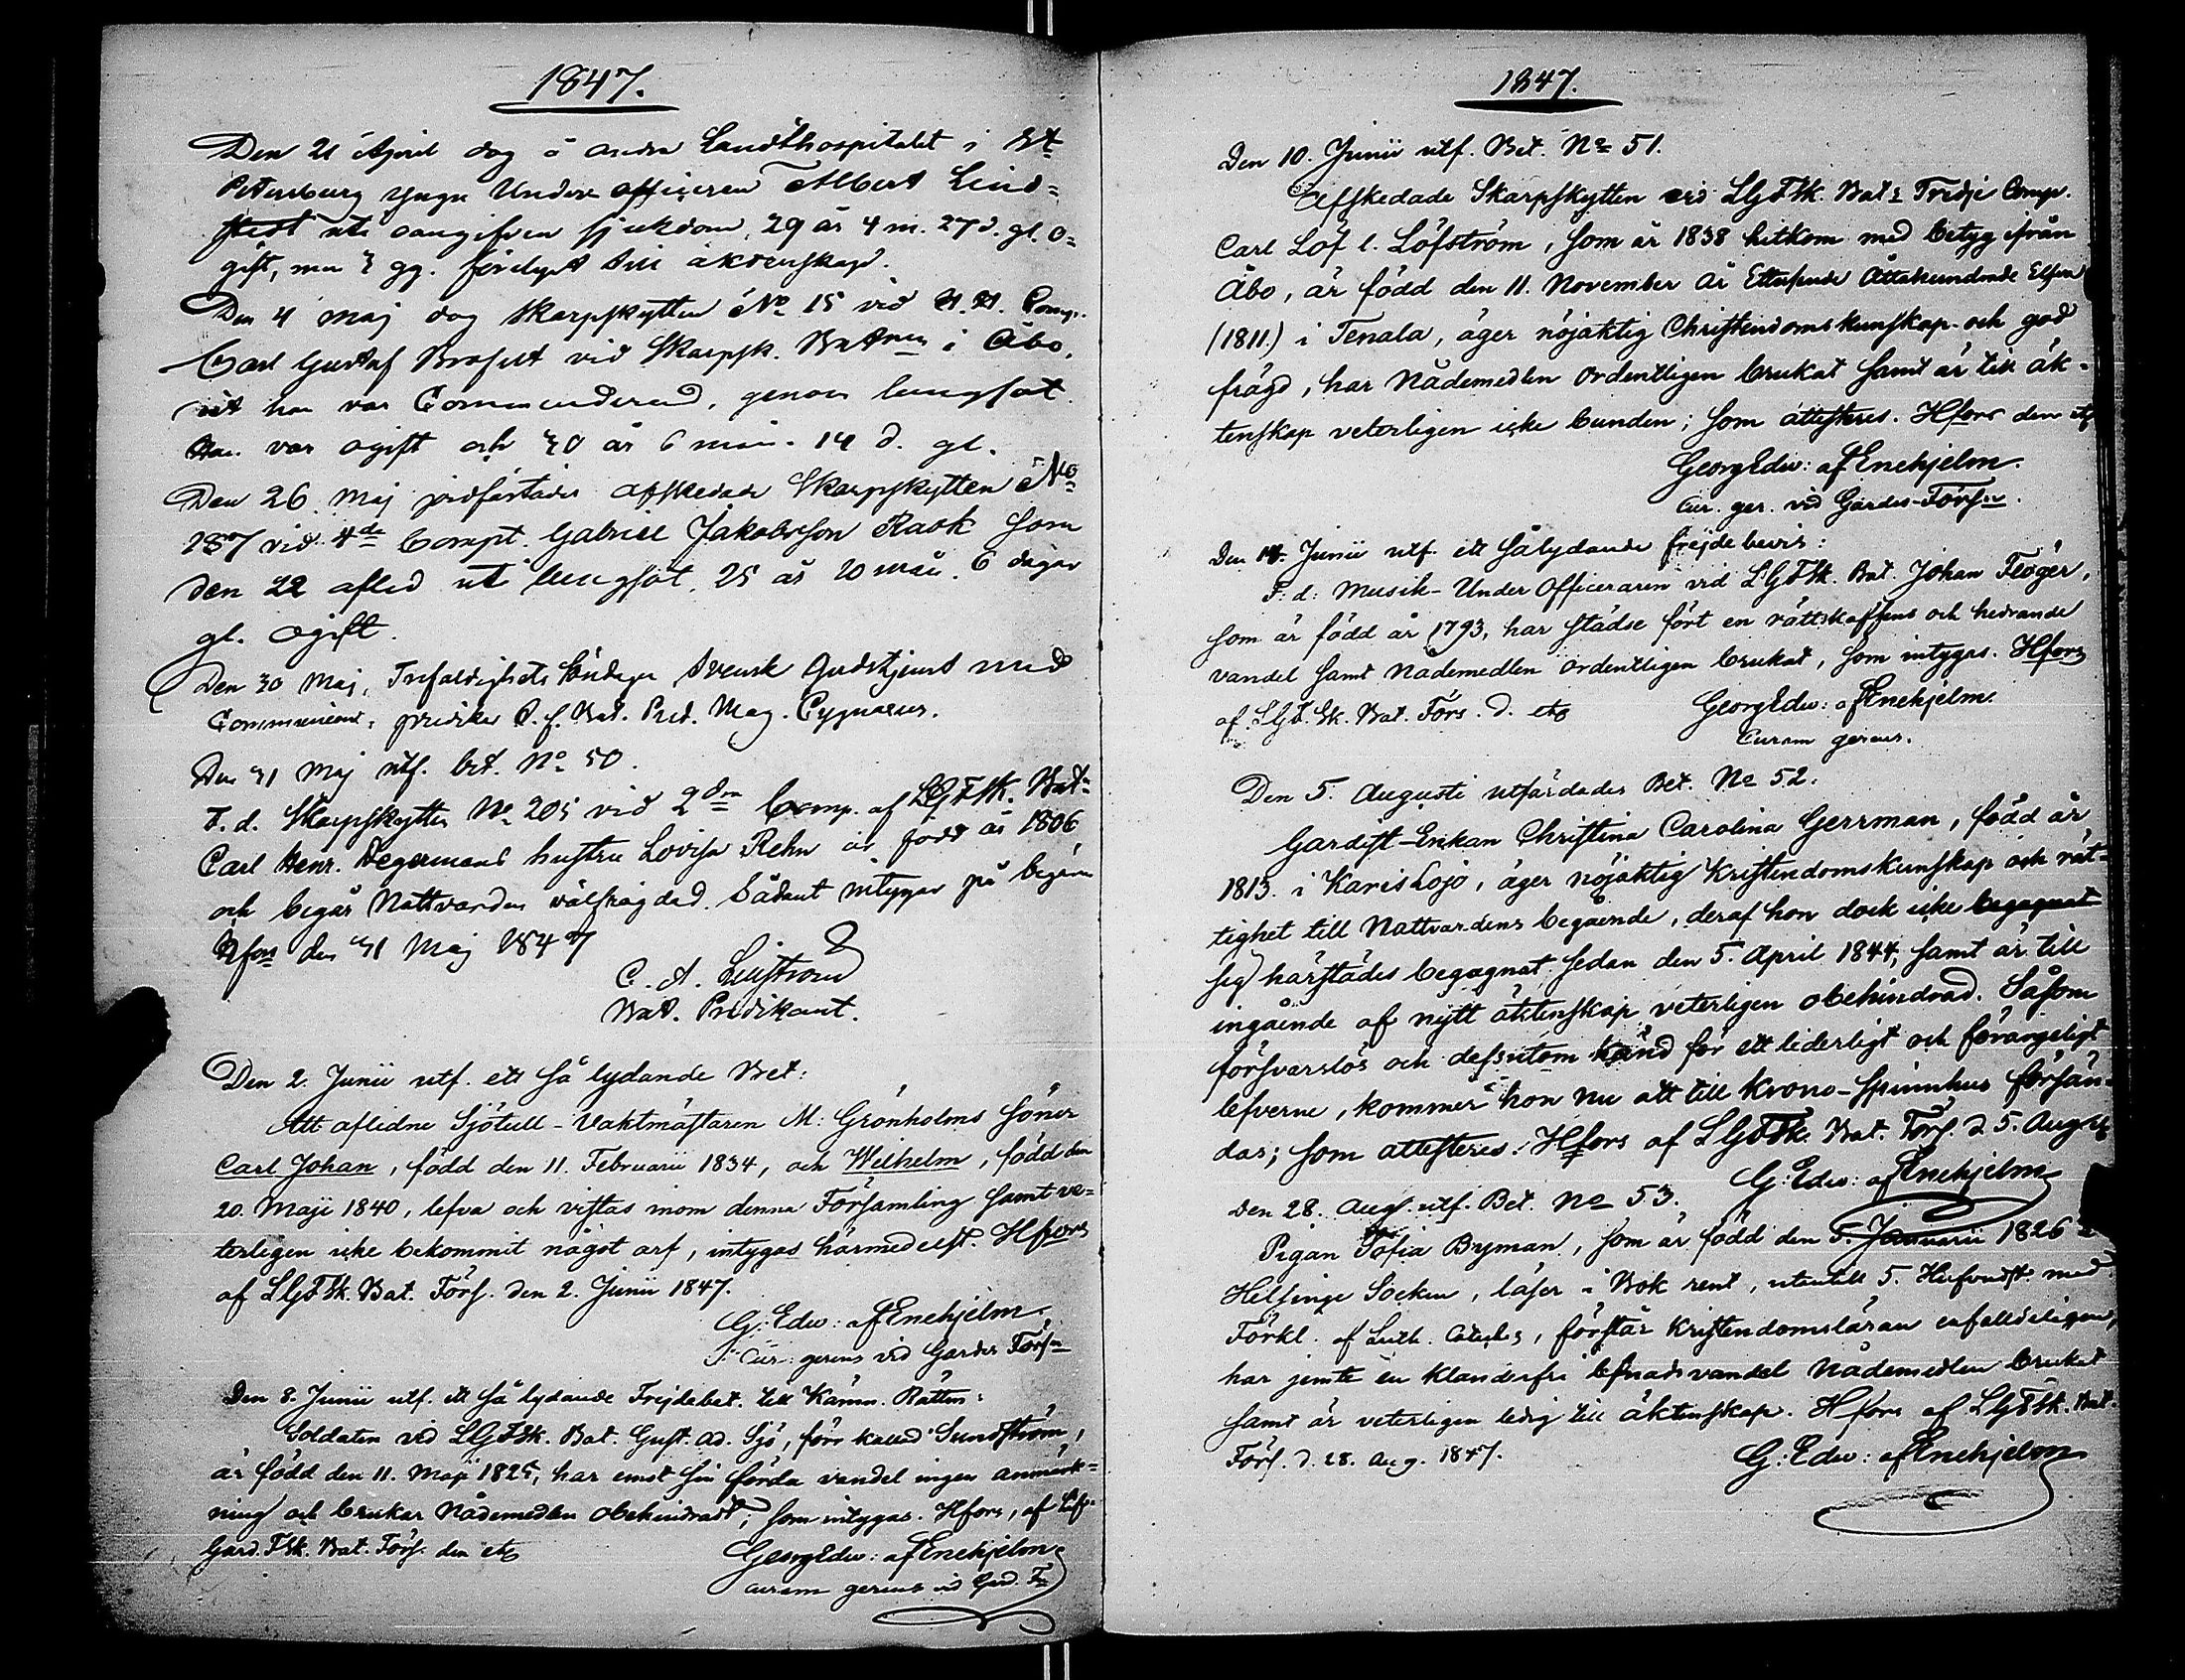 1847.
Den 21 April dog å andra Landthospitalet i St
Petersburg yngre Under officeren Albert Lind=
stedt uti oangifven sjukdom, 29 år 4 m. 27 d. gl. o=
gift, men 3 gg. förlyst till äktenskap.
Den 4 Maj dog Skarpskytten No 15 vid Comp.
Carl Gustaf Brofelt vid Skarpsk. Batnen i Åbo,
dit han var Commenderad, genom lungsot.
Han var ogift och 30 år 6 mån. 14 d. gl.
Den 26 Maj jordfästades afskedade Skarpskytten No
137 vid 4de Compt. Gabriel Jakobsson Rask som
den 22 afled uti lungsot, 25 år 10 mån. 6 dagar
gl. ogift.
Den 30 Maj, Trefaldighets Söndagen, Svensk Gudstjenst med
Communion, predikan v. f. Bat. Pred. Mag. Cygnaeus.
Den 31 Maj utf. bet. No 50.
F. d. Skarpskytten No 205 vid 2dra Comp. af LGFSk. Bat:
Carl Henr. Degermans hustru Lovisa Rehn är född år 1806
och begår Nattvarden välfrägdad. Sådant intygar på begäran
Hfors den 31 Maj 1847
C. A. Liljström
Bat. Predikant.
Den 2. Junii utf. ett så lydande Bet:
Att aflidne Sjötull-Vaktmästaren M: Grönholms söner
Carl Johan, född den 11. Februarii 1834, och Wilhelm, född den
20. Maji 1840, lefva och vistas inom denna Församling samt ve=
terligen icke bekommit något arf, intygas härmedelst. Hfors
af LGFSk. Bat. Förs. den 2. Junii 1847.
G: Edw: af Enehjelm.
Cur: gerens vid Gardes Försn
Den 8. Junii utf. ett så lydande Frejdebet. till Kämn. Rätten:
Soldaten vid LGFSk. Bat. Gust. Ad. Sjö, förr kallad Sundström,
är född den 11. Maji 1825, har emot sin förda vandel ingen anmärk=
ning och brukar Nådemedlen obehindradt; som intygas. Hfors, af Lif-
Gard. FSk. Bat. Förs. den etc
Georg Edw: af Enehjelm
curam gerens vid Gard. Fn
1847.
Den 10. Junii utf. Bet. No 51.
Afskedade Skarpskytten vid LGFSk. Bats Tredje Comp.
Carl Löf l. Löfström, som år 1838 hitkom med betyg ifrån
Åbo, är född den 11. November år Ettusende Åttahundrade Elfva
(1811.) i Tenala, äger nöjaktig Christendomskunskap och god
frägd, har Nådemedlen ordentligen brukat samt är till äk-
tenskap veterligen icke bunden; som attesteras. Hfors den etc
Georg Edw: af Enehjelm.
Cur. ger. vid Gardes-Försn.
Den 14. Junii utf. ett sålydande frejdebevis:
F: d: Musik-Under Officeraren vid LGFSk. Bat. Johan Flöger,
som är född år 1793, har städse fört en rättskaffens och hedrande
vandel samt Nådemedlen ordentligen brukat, som intygas. Hfors
af LGF. Sk. Bat. Förs. d. etc
Georg Edw: af Enehjelm.
Curam gerens.
Den 5. Augusti utfärdades Bet. No 52.
Gardist-Enkan Christina Carolina Gerrman, född år
1813. i Karis Lojo, äger nöjaktig Kristendomskunskap och rät-
tighet till Nattvardens begående, deraf hon dock icke begagnat
sig härstädes begagnat sedan den 5. April 1844, samt är till
ingående af nytt äktenskap veterligen obehindrad. Såsom
försvarslös och dessutom känd för ett liderligt och förargeligt
lefverne, kommer hon nu att till Krono-Spinnhus försän-
das; som attesteras. Hfors af LGFSk. Bat. Förs. d. 5. Aug. etc
G: Edw: af Enehjelm
Den 28. Aug. utf. Bet. No 53.
Pigan Sofia Byman, som är född den 5. Januarii 1826 i
Helsinge Socken, läser i Bok rent, utantill 5. Hufvudst. med
Förkl. af Luth. Catech:s, förstår Kristendomsläran enfalldeligen,
har jemte en klanderfri lefnadsvandel Nådemedlen brukat
samt är veterligen ledig till äktenskap. Hfors af LGFSk. Bat.
Förs. d. 28. Aug. 1847.
G: Edw: af Enehjelm